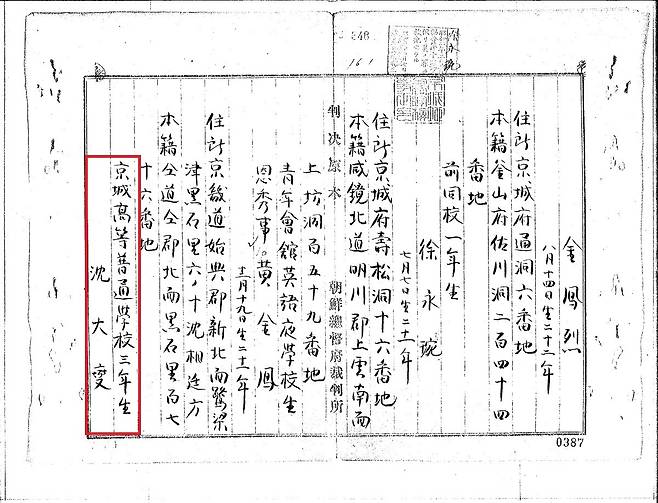 248
161
金鳳烈
八月十四日生二十二年
住所京城府通洞六番地
本籍釜山府佐川洞二百四十四
番地
前同校一年生
徐永琬
七月七日生二十一年
住所京城府壽松洞十六番地
本籍咸鏡北道明川郡上雲南面
判決原本
朝鮮總督府裁判所
上坊洞百五十九番地
青年會舘英語夜學校生
恩秀事 黄金鳳
十二月十九日生二十一年
住所京畿道始興郡新北面鷺梁
津黒石里六ノ十沈相廷方
本籍仝道仝郡北面黒石里百七
十六番地
京城高等普通學校三年生
沈大燮
0387